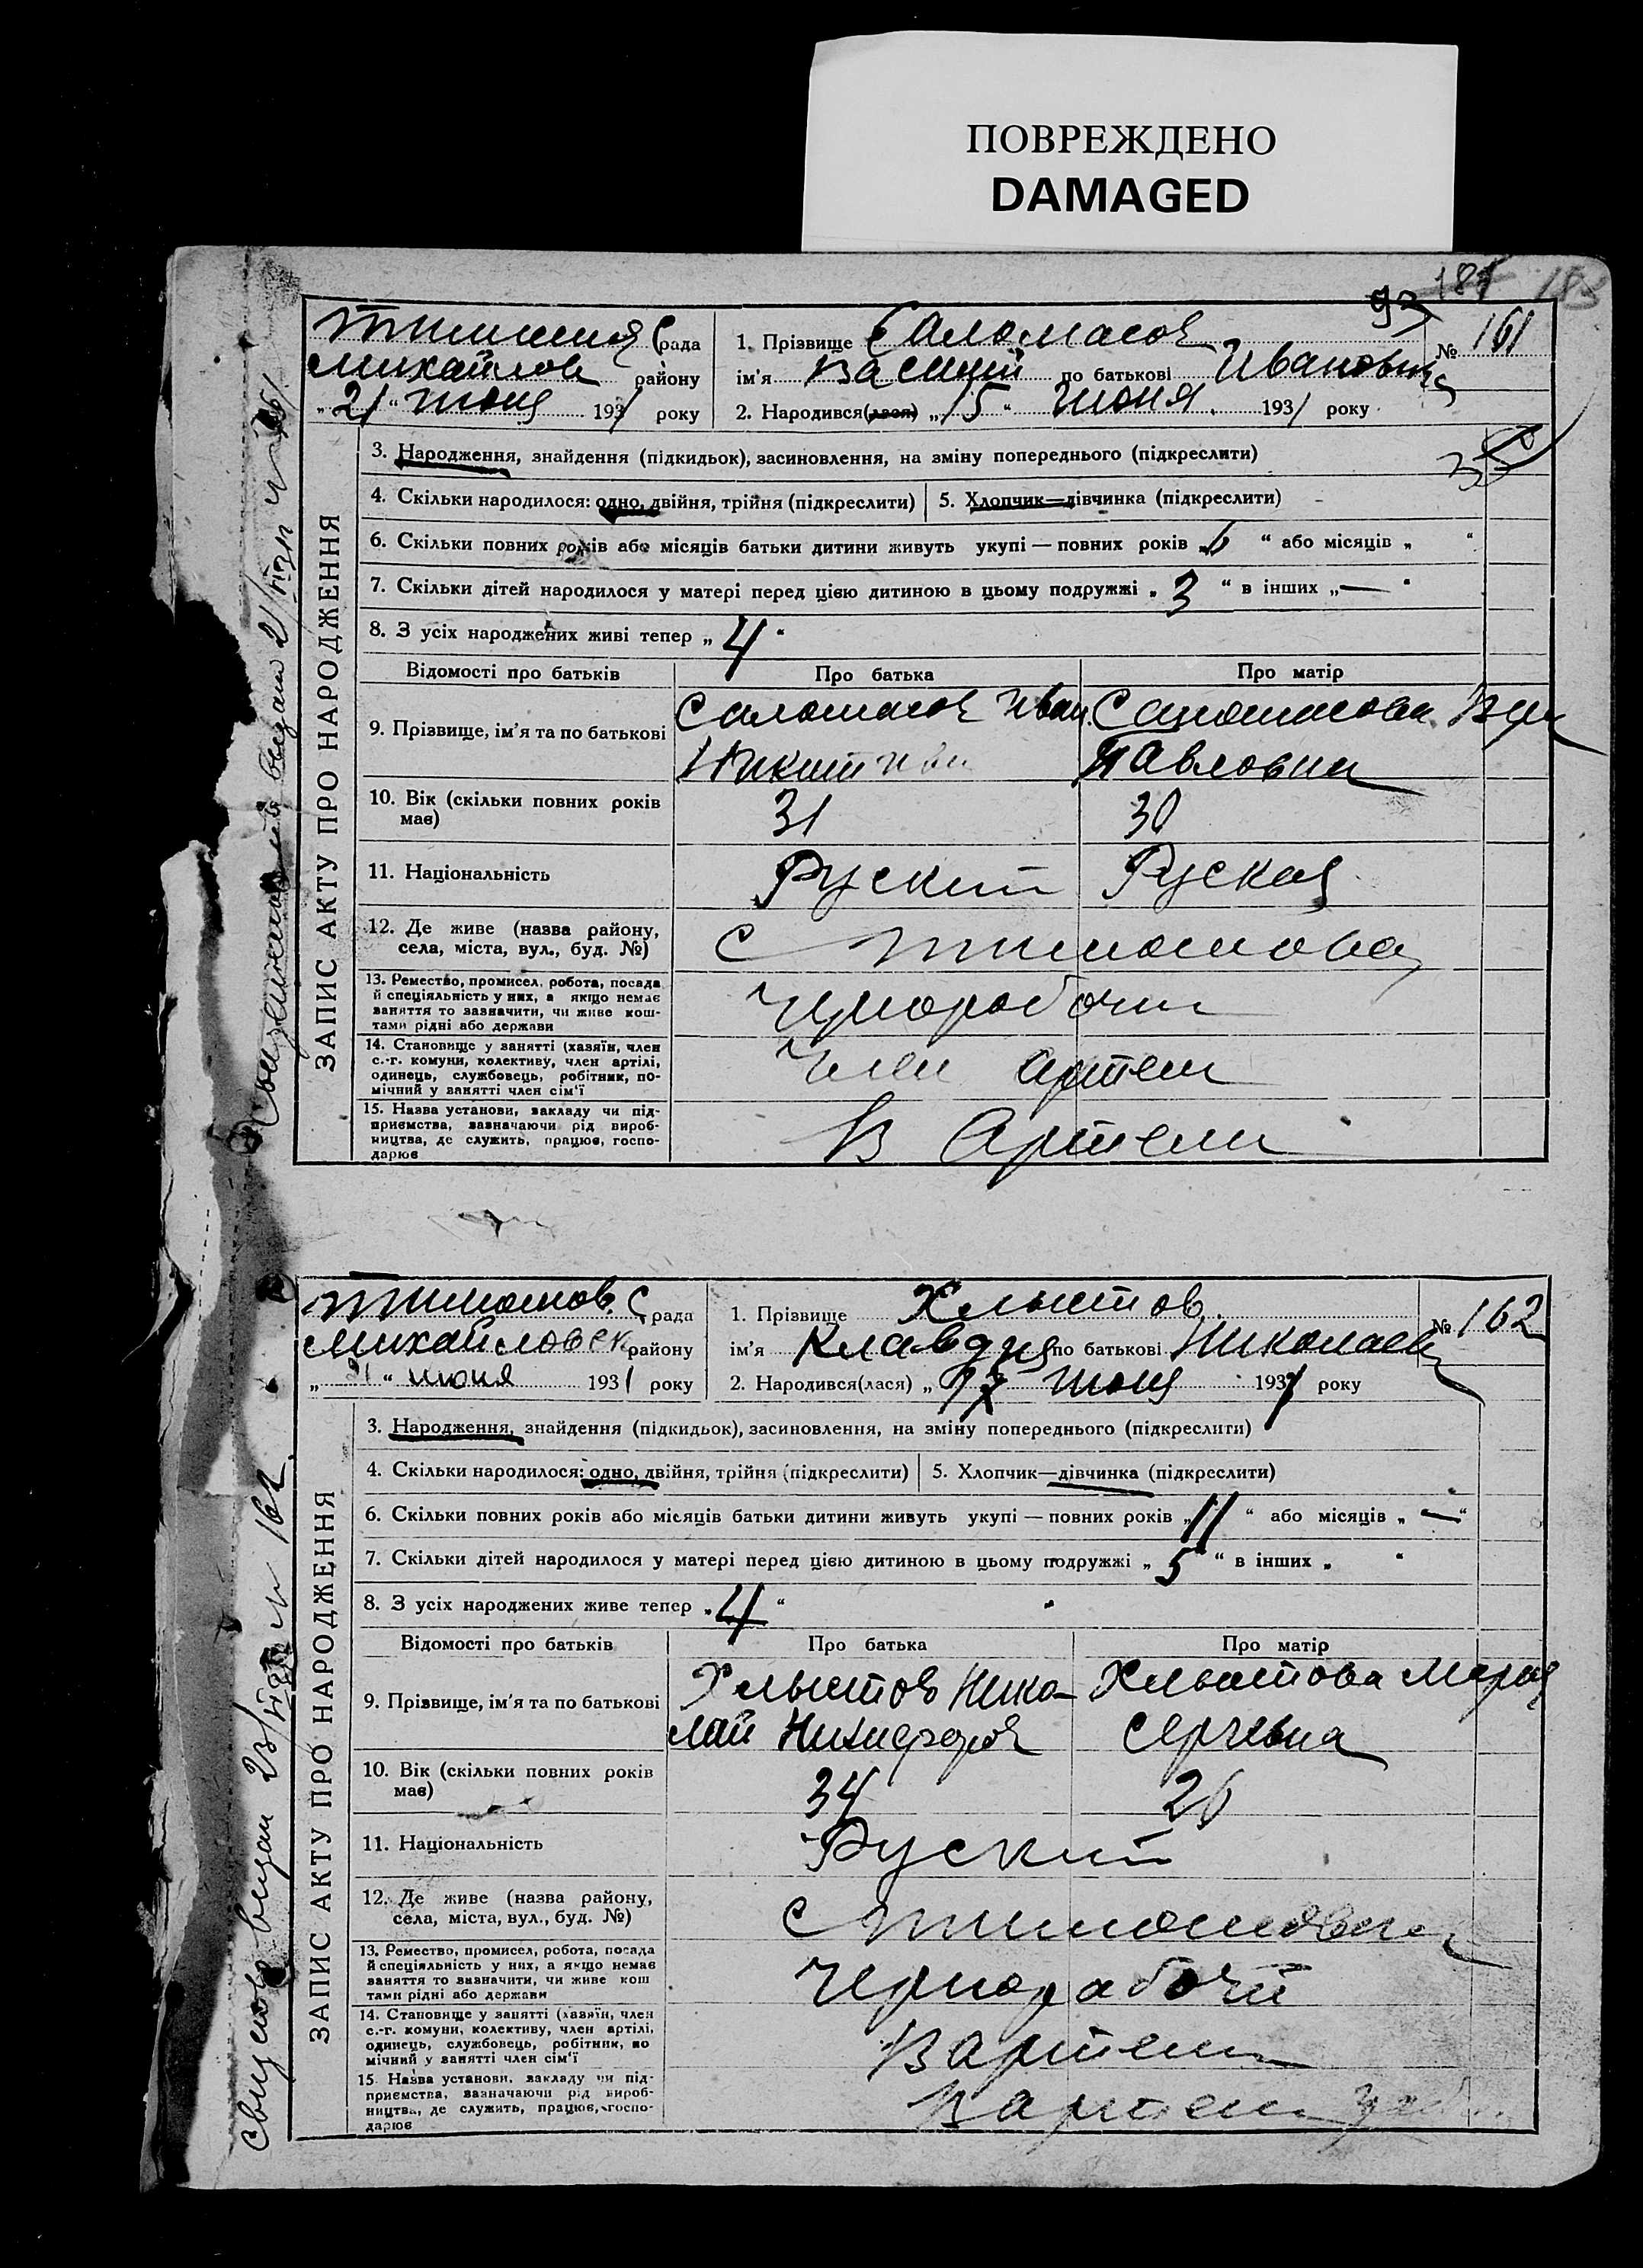 ПОВРЕЖДЕНО
DAMAGED
93 181 183
рада 1. Прізвище Саломасов № 161
Михайлов району ім'я Василий по батькові Иванович
„21“ июня 1931 року 2. Народився(лася) „15“ июня. 1931 року
ЗАПИС АКТУ ПРО НАРОДЖЕННЯ
3. Народження, знайдення (підкидьок), засиновлення, на зміну попереднього (підкреслити)
4. Скільки народилося: одно, двійня, трійня (підкреслити) 5. Хлопчик—дівчинка (підкреслити)
6. Скільки повних років або місяців батьки дитини живуть укупі — повних років „ “ або місяців „ “
7. Скільки дітей народилося у матері перед цією дитиною в цьому подружжі „3“ в інших „—“
8. З усіх народжених живі тепер „4“
Відомості про батьків Про батька Про матір
9. Прізвище, ім'я та по батькові Саломасов Иван Саломасова
Никит Павловна
10. Вік (скільки повних років 31 30
має)
11. Національність Руский Руская
12. Де живе (назва району, с
села, міста, вул., буд. №)
13. Ремество, промисел, робота, посада
й спеціяльність у них, а якщо немає
заняття то зазначити, чи живе кош-
тами рідні або держави
14. Становище у занятті (хазяїн, член Член артели
с.-г. комуни, колективу, член артілі,
одинець, службовець, робітник, по-
мічний у занятті член сім'ї
15. Назва установи, закладу чи під- В Артели
приємства, зазначаючи рід вироб-
ництва, де служить, працює, госпо-
дарює
Тимошов. С рада 1. Прізвище Хлыстов № 162
Михайловск району ім'я Клавдия по батькові Николаевн
„21“ июня 1931 року 2. Народився(лася) „17 июня 1931 року
ЗАПИС АКТУ ПРО НАРОДЖЕННЯ
3. Народження, знайдення (підкидьок), засиновлення, на зміну попереднього (підкреслити)
4. Скільки народилося: одно, двійня, трійня (підкреслити) 5. Хлопчик—дівчинка (підкреслити)
6. Скільки повних років або місяців батьки дитини живуть укупі — повних років „11“ або місяців „—“
7. Скільки дітей народилося у матері перед цією дитиною в цьому подружжі „5“ в інших „ “
8. З усіх народжених живе тепер „4“
Відомості про батьків Про батька Про матір
9. Прізвище, ім'я та по батькові Хлыстов Нико- Хлыстова Мария
лай Никифоров Сергевна
10. Вік (скільки повних років 34 26
має)
11. Національність Руский
12. Де живе (назва району, с
села, міста, вул., буд. №)
13. Ремество, промисел, робота, посада Чернорабочий
й спеціяльність у них, а якщо немає
заняття то зазначити, чи живе кош
тами рідні або держави
14. Становище у занятті (хазяїн, член В артели
с.-г. комуни, колективу, член артілі,
одинець, службовець, робітник, по
мічний у занятті член сім'ї
15. Назва установи, закладу чи під- В артели
приємства, зазначаючи рід вироб-
ництва, де служить, працює, госпо-
дарює